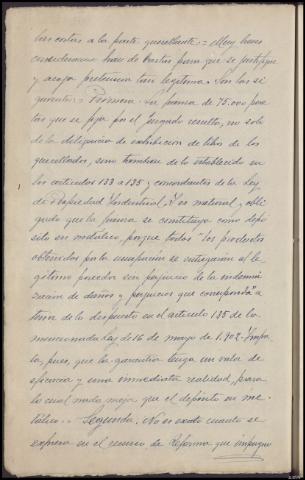 las costas a la parte querellante.= Muy breves
consideraciones han de bastar para que se justifique
y acoja pretension tan legitima. Son las si
guientes:= Primera. La fianza de 75.000 pese
tas que se fija por el Juzgado resulta, no solo
de la diligencia de exhibicion de libros de los
querellados, sino tambien de lo establecido en
los articulos 133 a 135 y concordantes de la ley
de Propiedad Industrial. Y es natural, obli
gado que la fianza se constituya como depó
sito en metálico, porque todos "los productos
obtenidos por la usurpación se entregarán al le
gitimo poseedor sin perjuicio de la indemni
zacion de daños y perjuicios que corresponda" a
tenor de lo dispuesto en el articulo 135 de la
mencionada ley de 16 de mayo de 1.902. Impor
ta, pues, que la garantia tenga un valor de
eficacia y una inmediata realidad, para
lo cual nada mejor que el depósito en me
tálico.- Segunda. No es exacto cuanto se
expresa en el recurso de Reforma que impugno